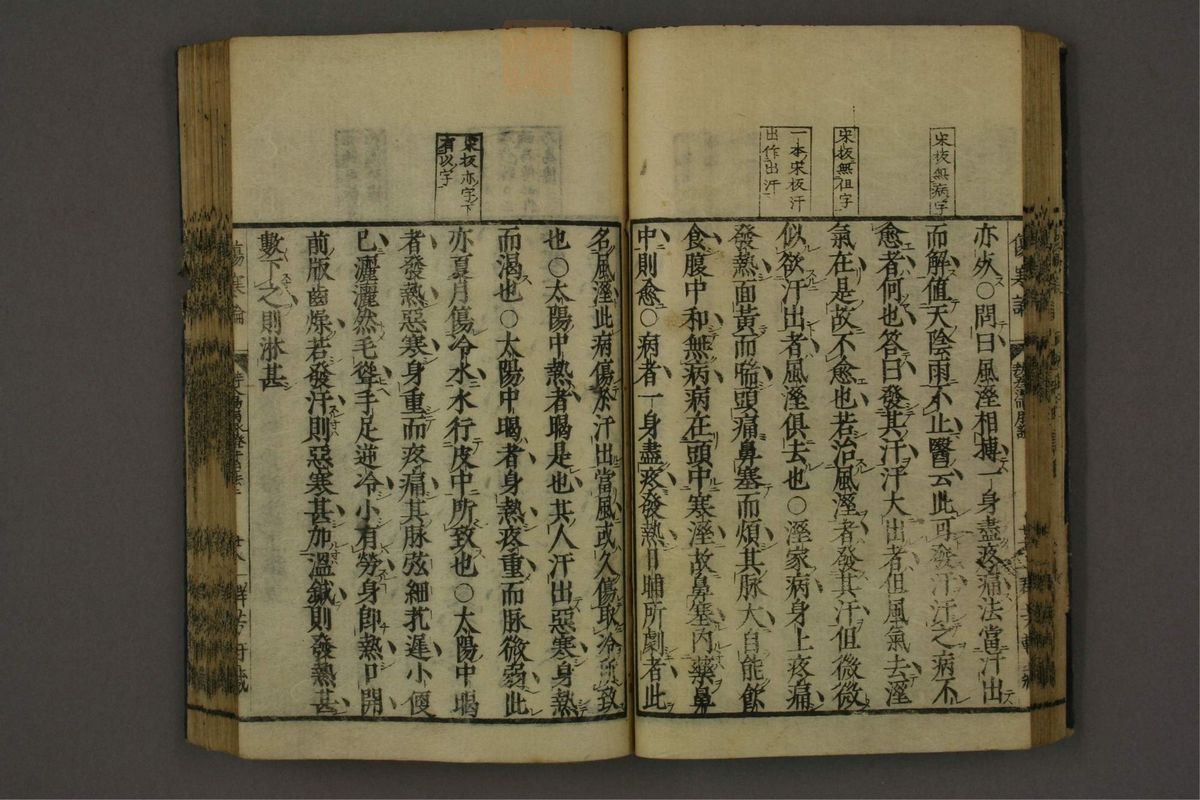 宋板無病字
宋板無但字
一本宋板汗
出作出汗
亦死○問曰風溼相搏一身盡疼痛法當汗出
而解值天陰雨不止醫云此可發汗汗之病不
愈者何也答曰發其汗汗大出者但風氣去溼
氣在是故不愈也若治風溼者發其汗但微微
似欲汗出者風溼俱去也○溼家病身上疼痛
發熱面黃而喘頭痛鼻塞而煩其脉大自能飲
食腹中和無病病在頭中寒溼故鼻塞內藥鼻
中則愈○病者一身盡疼發熱日晡所劇者此
宋板亦字下
有以字
名風溼此病傷於汗出當風或久傷取冷所致
也○太陽中熱者暍是也其人汗出惡寒身熱
而渴也○太陽中暍者身熱疼重而脉微弱此
亦夏月傷冷水水行皮中所致也○太陽中暍
者發熱惡寒身重而疼痛其脉弦細芤遲小便
已灑灑然毛聳手足逆冷小有勞身卽熱口開
前版齒燥若發汗則惡寒甚加溫鍼則發熱甚
數下之則淋甚
傷寒論